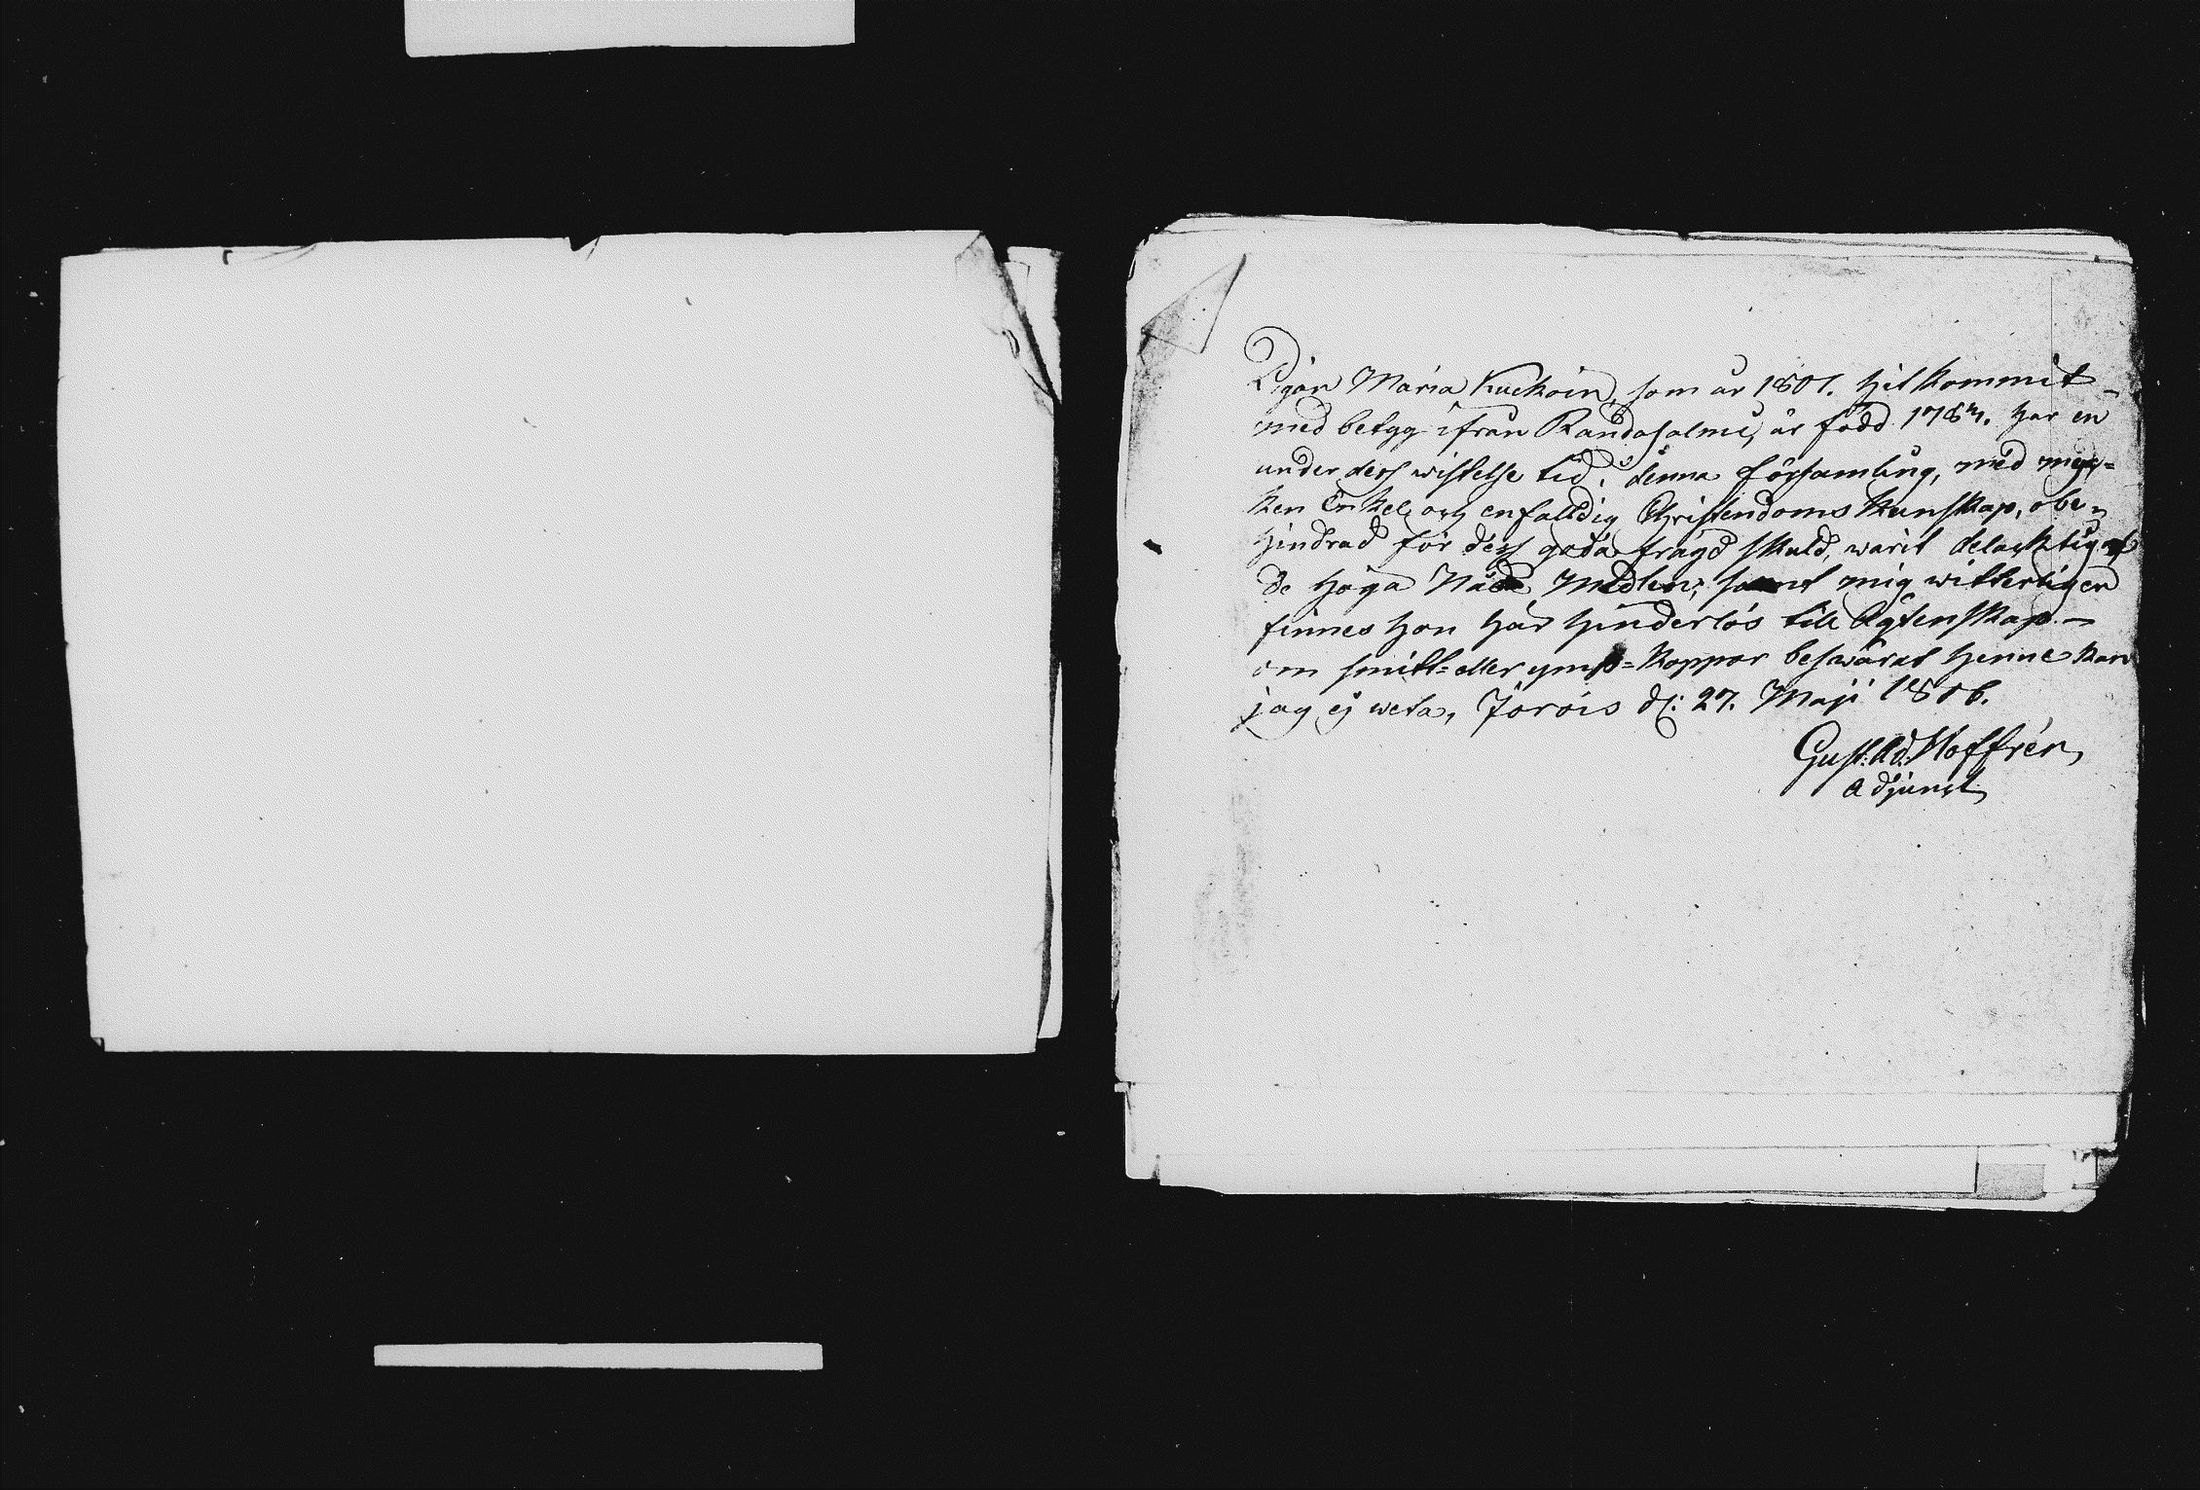 Pigan Maria Kuckoin, som år 1801. hit kommit
med betyg ifrån Randasalmi, är född 1787. har en
under dess wistelse tid i denna församling, med myc-
ken Enkel och enfalldig Christendoms kunskap, obe-
hindrad för dess goda frägd skuld, warit delachtig af
de höga Nåde Medlen; samt mig witterligen
finnes hon här hinderlös till Ägtenskap. —
om smitt- eller ymp-koppor beswärat henne kan
jag ej weta, Jorois d: 27. Maji 1806.
Gust: Ad: Hoffrén,
Adjunct